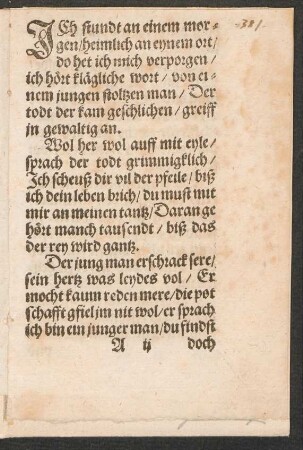 381.
ICh stundt an einem mor⸗
gen/heimlich an eynem ort/
do het ich mich verporgen/
ich hört klägliche wort/von ei⸗
nem jungen stoltzen man/Der
todt der kam geschlichen/greiff
jn gewaltig an.
Wol her wol auff mit eyle/
sprach der todt grimmigklich/
Ich scheuß dir vil der pfeile/biß
ich dein leben brich/du must mit
mir an meinen tantz/Daran ge
hört manch tausendt/biß das
der rey wird gantz.
Der jung man erschrack sere/
sein hertz was leydes vol/Er
mocht kaum reden mere/die pot
schafft gfiel jm nit wol/er sprach
ich bin ein junger man/du findst
A ij doch